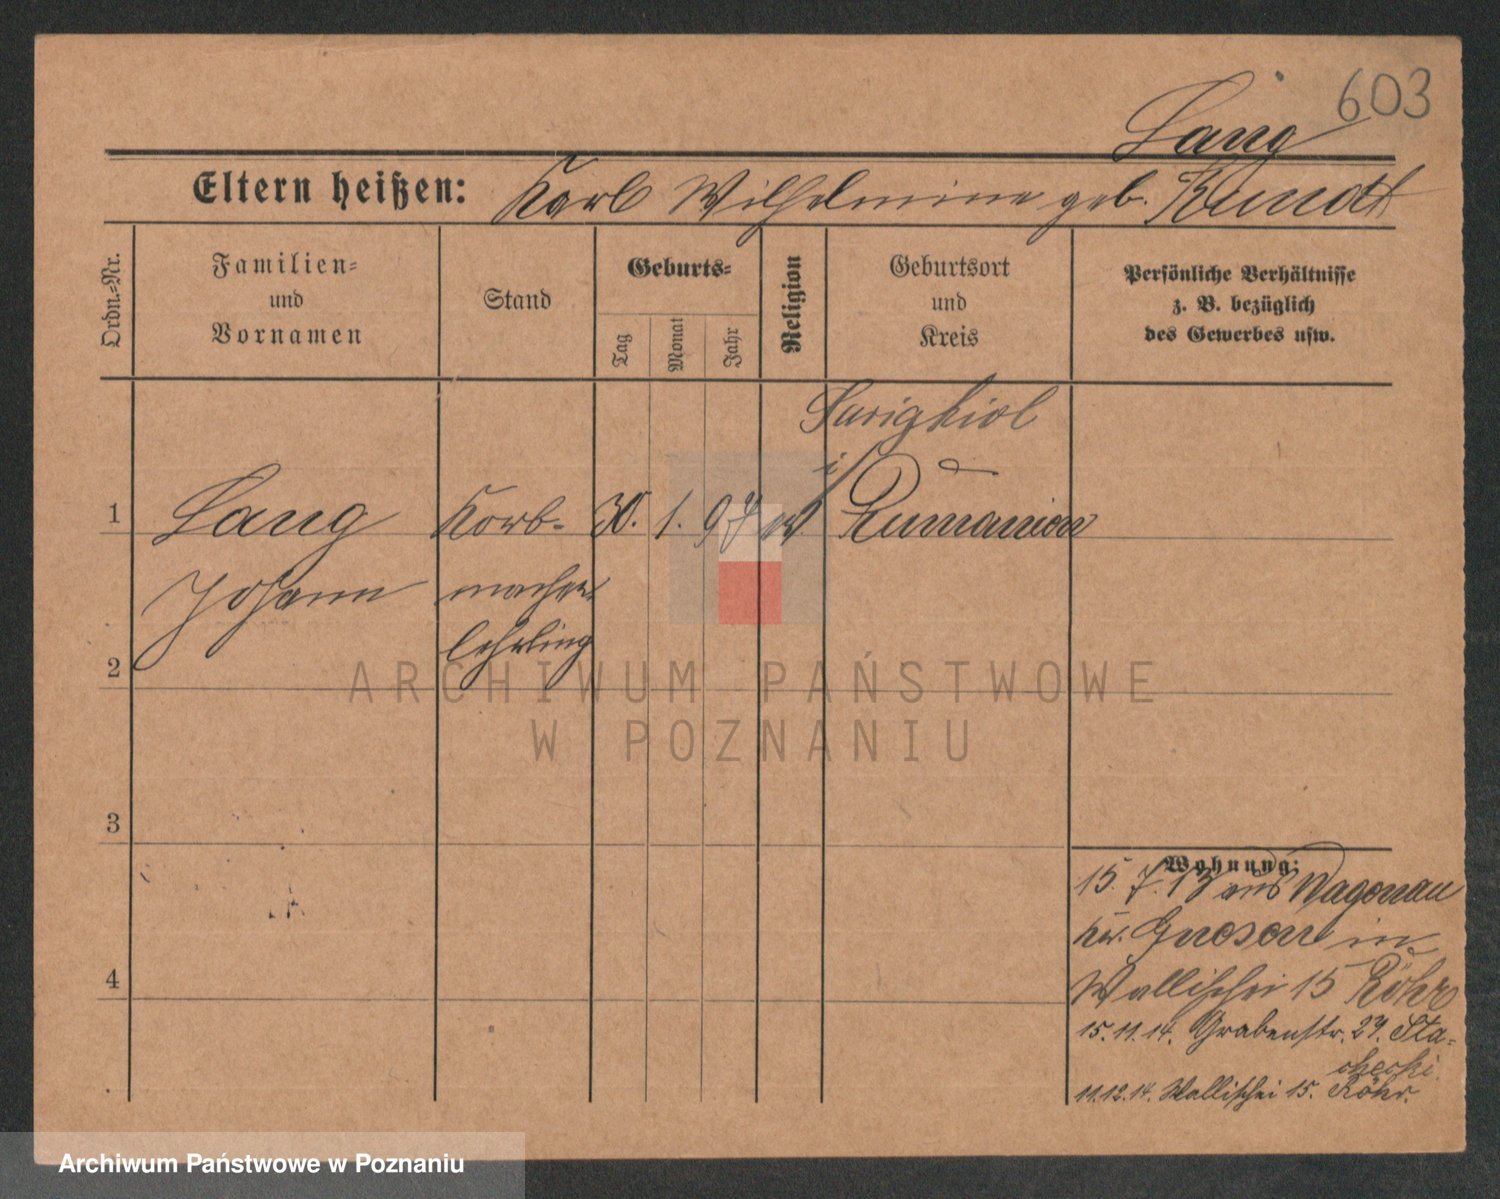 603
Lang
Eltern heißen: Karl Wilhelmine geb. Kundt
Ordn.-Nr.
Familien-
und
Vornamen
Stand
Geburts-
Tag
Monat
Jahr
Religion
Geburtsort
und
Kreis
Persönliche Verhältnisse
z. B. bezüglich
des Gewerbes usw.
Sarighiol
i/
1 Lang Korb- 30. 1. 97 ev. Rumänien
Johann macher
lehrling
2
3
4
Wohnung:
15. 7. 13 aus Wagonau
Kr. Gnesen in
Wallischei 15 Röhr
15.11.14. Grabenstr. 27. Sta-
checki.
11.12.14. Wallischei 15. Röhr.
ARCHIWUM PAŃSTWOWE
W POZNANIU
Archiwum Państwowe w Poznaniu